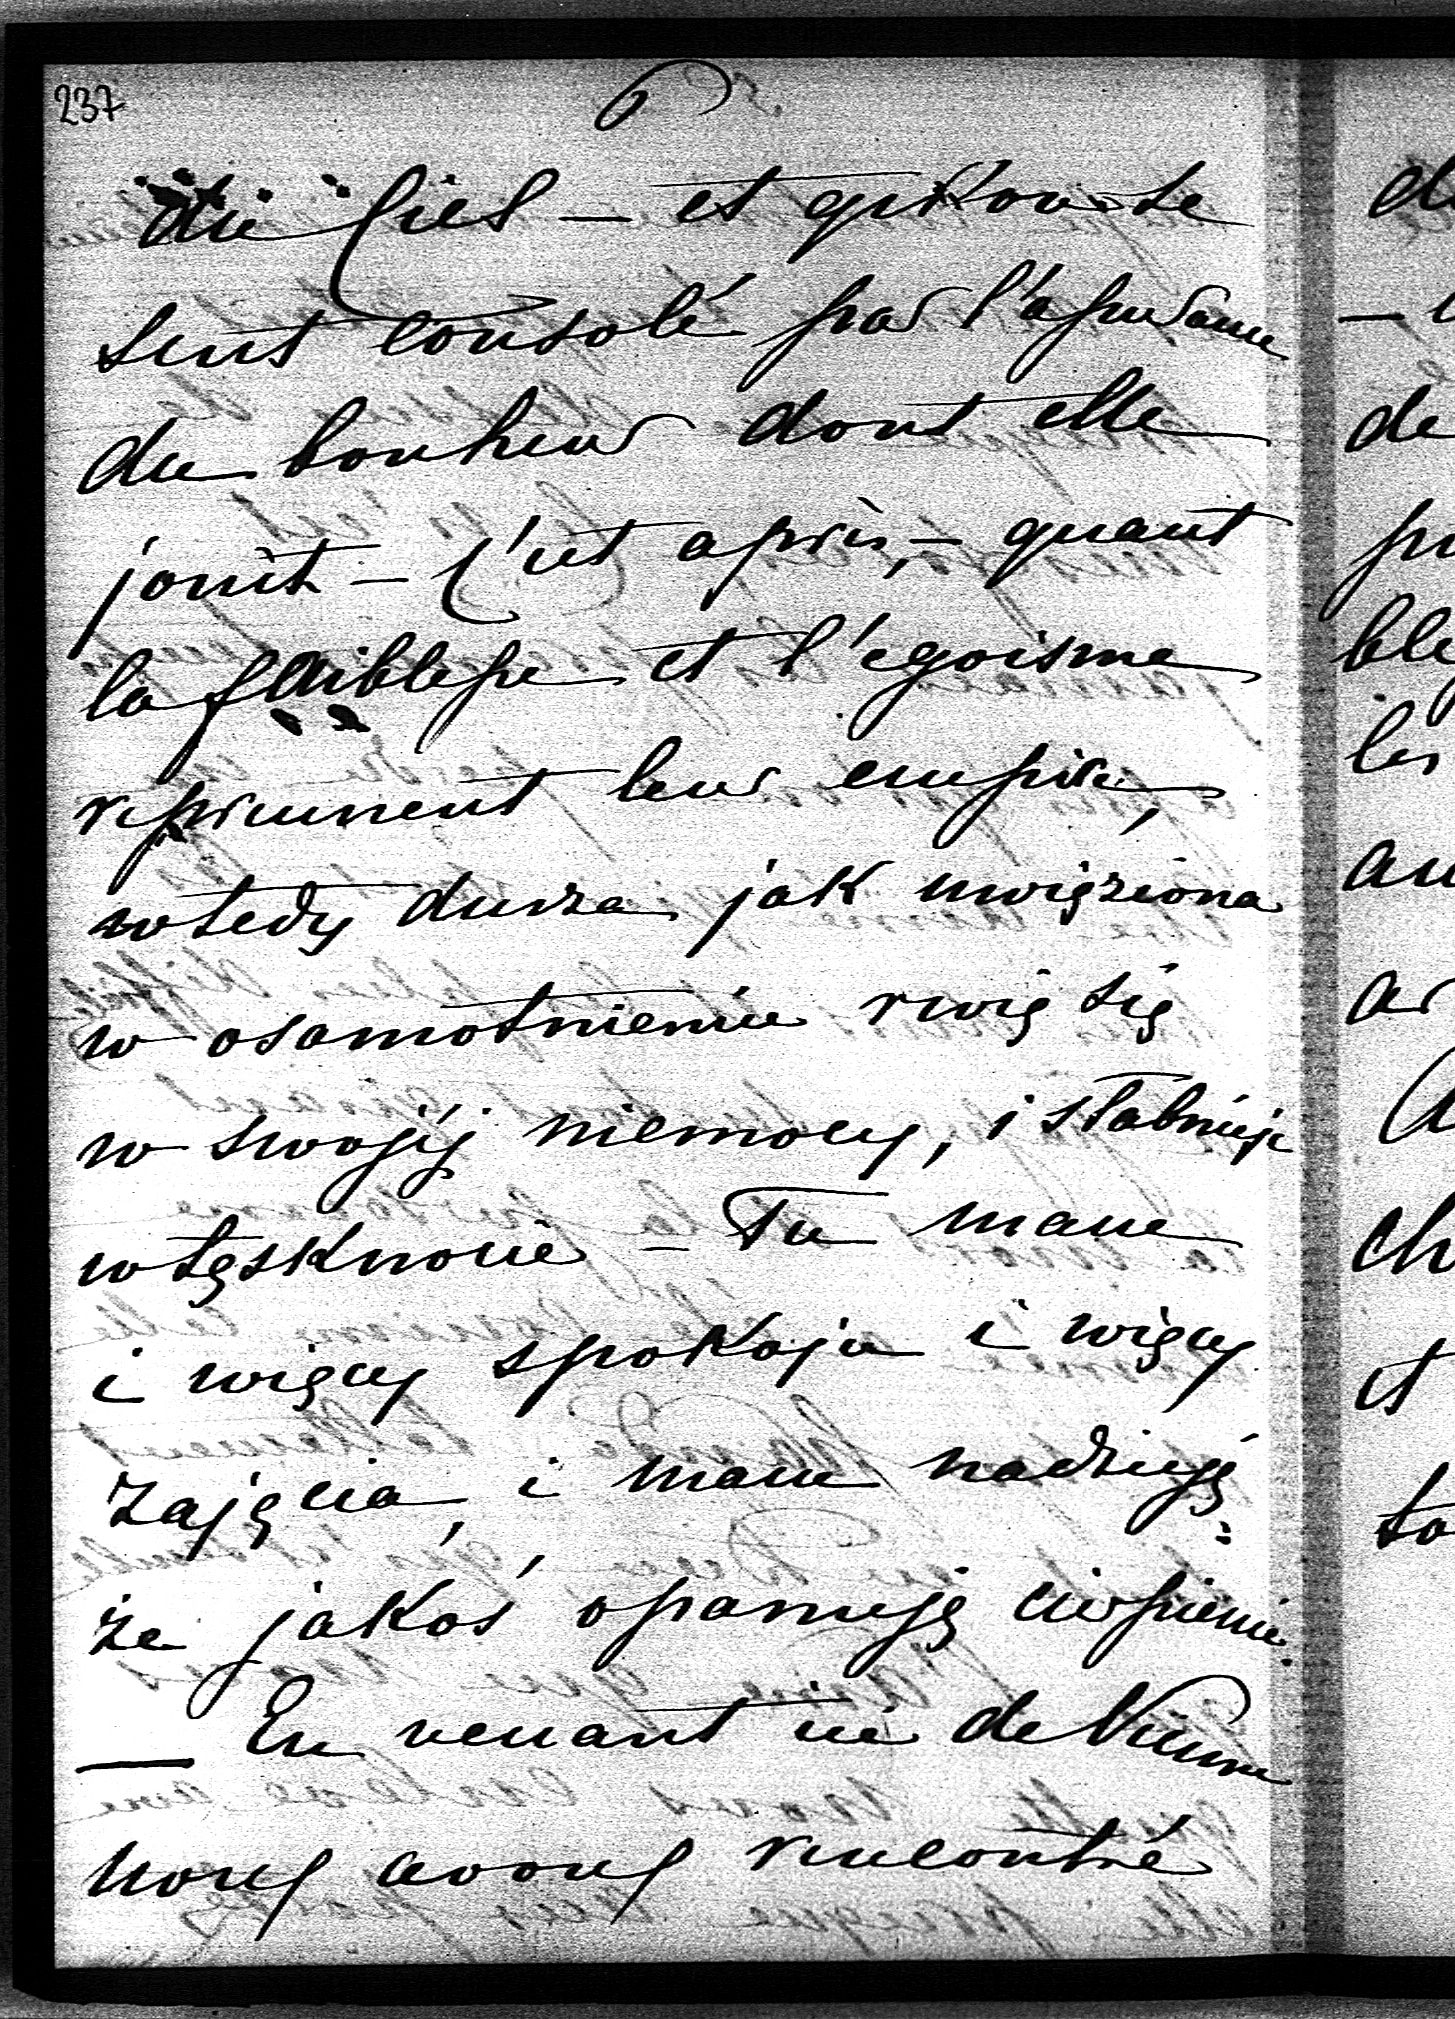 237
6
du Ciel — et qu'on se
sent consolé par l'apurance
du bonheur dont elle
jouit — C'est après, — quant
la faiblesse et l'égoisme
reprennent leur empire,
wtedy dusza jak uwięziona
w osamotnieniu rwię się
w swojéj niemocy, i słabnieje
w tęsknocie — Tu mam
i więcej spokoju i więcej
zajęcia, i mam nadzieję
że jakoś opanuję cierpienie.
— En venant ici de Vienne
nous avons rencontré